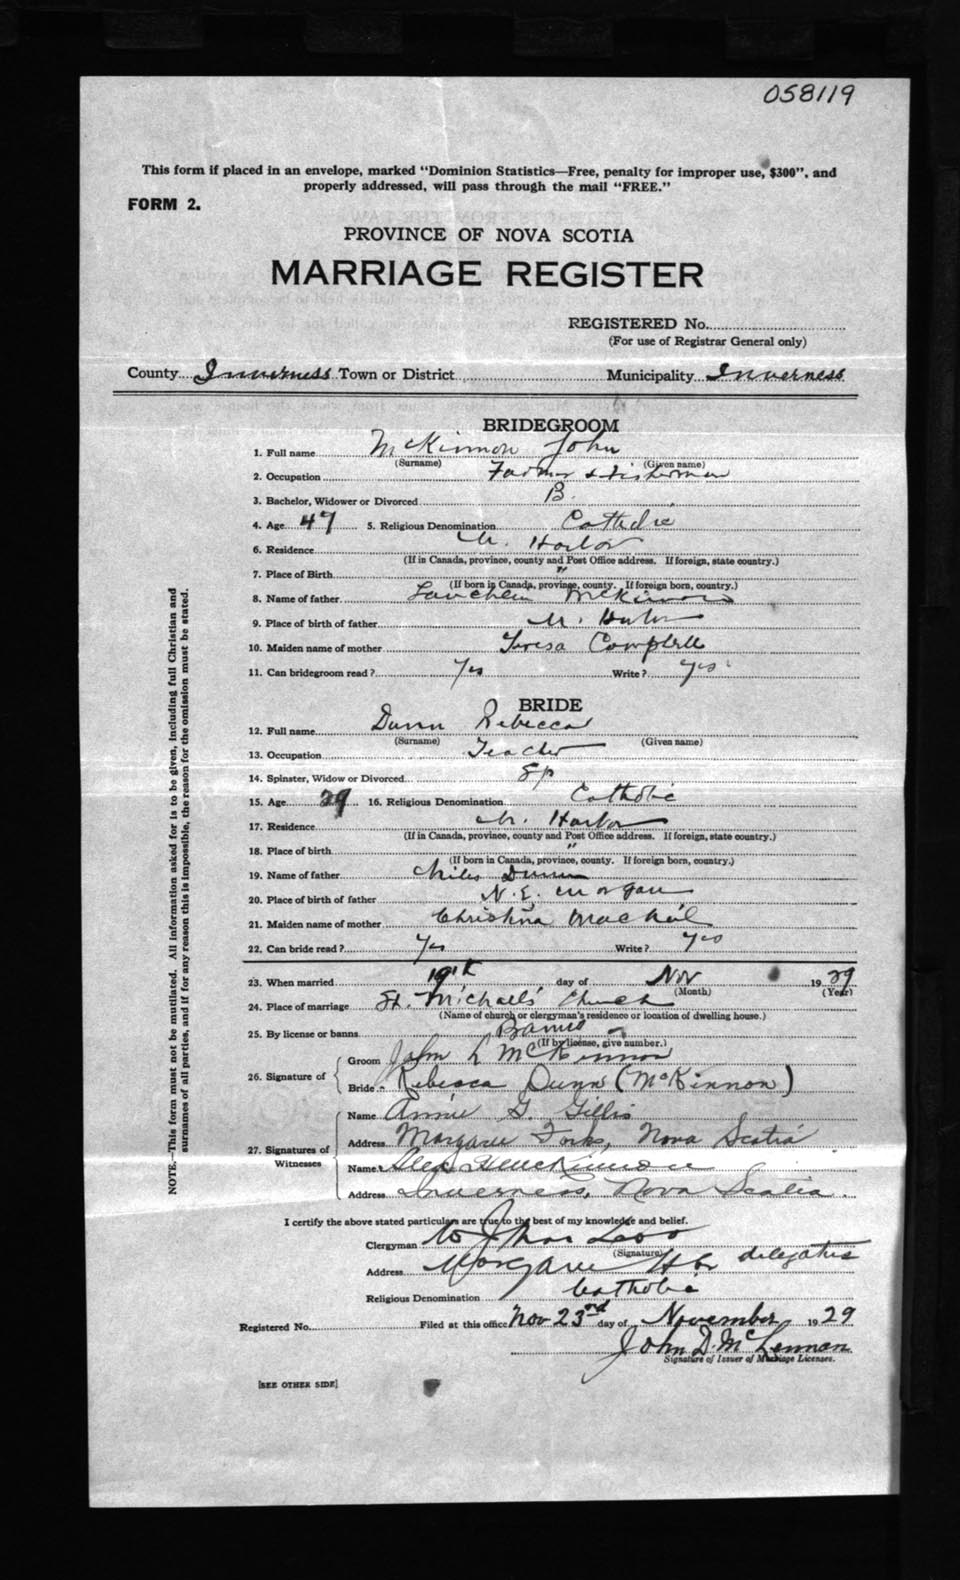 058119
This form if placed in an envelope, marked "Dominion Statistics—Free, penalty for improper use, $300", and
properly addressed, will pass through the mail "FREE."
FORM 2.
PROVINCE OF NOVA SCOTIA
MARRIAGE REGISTER
REGISTERED No.
(For use of Registrar General only)
County Inverness Town or District Municipality Inverness
BRIDEGROOM
1. Full name McKinnon John
(Surname) (Given name)
2. Occupation Farmer & Fisherman
3. Bachelor, Widower or Divorced B.
4. Age 47 5. Religious Denomination Catholic
6. Residence M. Harbor
(If in Canada, province, county and Post Office address. If foreign, state country.)
7. Place of Birth "
(If born in Canada, province, county. If foreign born, country.)
8. Name of father Lauchlin McKinnon
9. Place of birth of father M. Harbor
10. Maiden name of mother Teresa Campbell
11. Can bridegroom read? Yes Write? yes
BRIDE
12. Full name Dunn Rebecca
(Surname) (Given name)
13. Occupation Teacher
14. Spinster, Widow or Divorced Sp
15. Age 29 16. Religious Denomination Catholic
17. Residence M. Harbor
(If in Canada, province, county and Post Office address. If foreign, state country.)
18. Place of birth "
(If born in Canada, province, county. If foreign born, country.)
19. Name of father Miles Dunn
20. Place of birth of father N.E. Margaree
21. Maiden name of mother Christina MacNeil
22. Can bride read? Yes Write? yes
23. When married 19th day of Nov 1929
(Month) (Year)
24. Place of marriage St. Michaels' Church
(Name of church or clergyman's residence or location of dwelling house.)
25. By license or banns Banns
(If by license, give number.)
26. Signature of
Groom John L McKinnon
Bride Rebecca Dunn (McKinnon)
27. Signatures of Witnesses
Name Annie G. Gillis
Address Margaree Forks, Nova Scotia
Name Alex McKinnon
Address Inverness, Nova Scotia.
I certify the above stated particulars are true to the best of my knowledge and belief.
Clergyman
(Signature)
Address Margaree Hbr delegatus
Religious Denomination Catholic
Registered No. Filed at this office Nov 23rd day of November 1929
John D. McLennan
Signature of Issuer of Marriage Licenses.
[SEE OTHER SIDE]
NOTE.—This form must not be mutilated. All information asked for is to be given, including full Christian and
surnames of all parties, and if for any reason this is impossible, the reason for the omission must be stated.